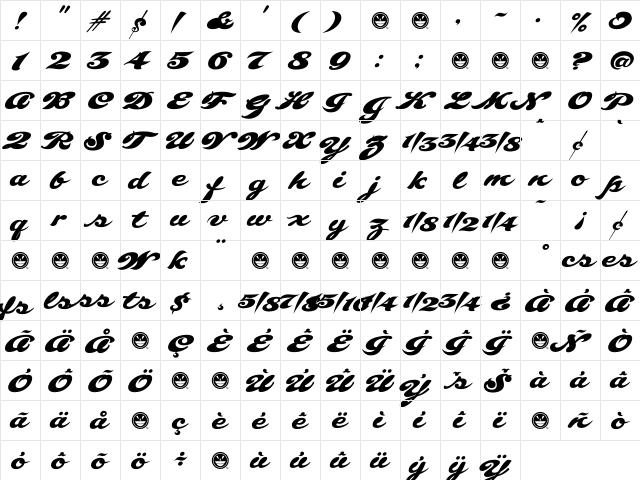 ! " # $ / & ' ( ) . ~ . % O
1 2 3 4 5 6 7 8 9 : ; ? @
A B C D E F G H I J K L M N O P
Q R S T U V W X Y Z 1/3 3/4 3/8 ¢
a b c d e f g h i j k l m n o p
q r s t u v w x y z 1/8 1/2 1/4 ~ ¡ ¢
W k ¨ ° cs es
fs ls ss ts $ . 5/8 7/8 1/4 1/2 3/4 ¿ À Á Â
Ã Ä Å Ç È É Ê Ë Ì Í Î Ï Ñ Ò
Ó Ô Õ Ö Ù Ú Û Ü Ý š Š à á â
ã ä å ç è é ê ë ì í î ï ñ ò
ó ô õ ö ÷ ù ú û ü ý ÿ Ÿ